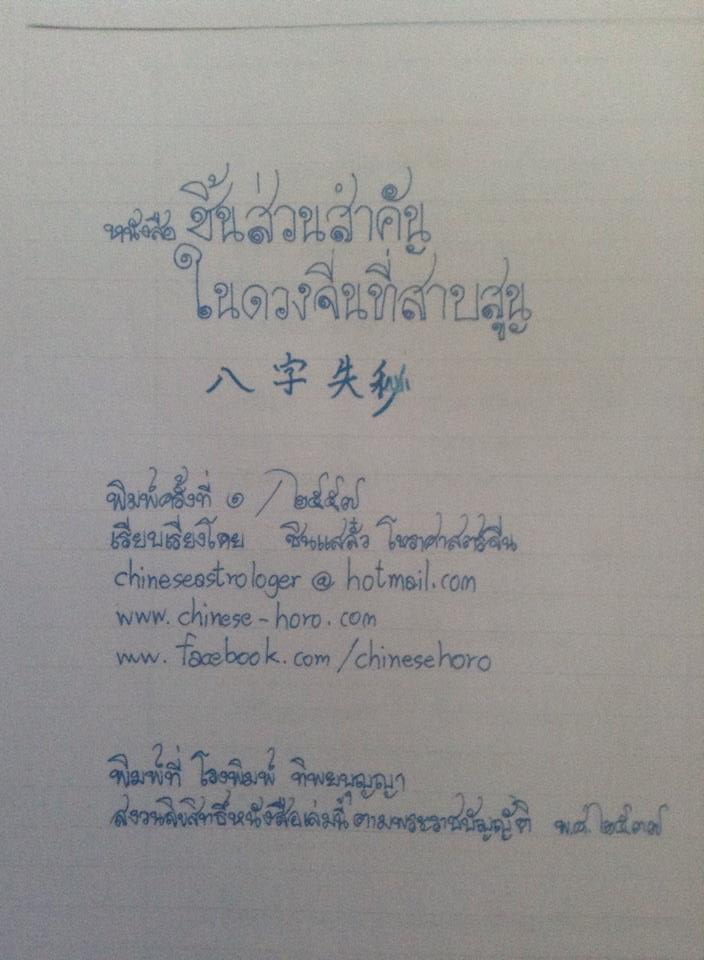 หนังสือ ชิ้นส่วนสำคัญ
ในดวงจีนที่สาบสูญ
八字失秘
พิมพ์ครั้งที่ ๑ / ๒๕๕๗
เรียบเรียงโดย ซินแสลั้ว โหราศาสตร์จีน
chineseastrologer @ hotmail.com
www. chinese-horo. com
www. facebook. com /chinesehoro
พิมพ์ที่ โรงพิมพ์ ทิพยบุญญา
สงวนลิขสิทธิ์หนังสือเล่มนี้ ตามพระราชบัญญัติ พ.ศ. ๒๕๓๗